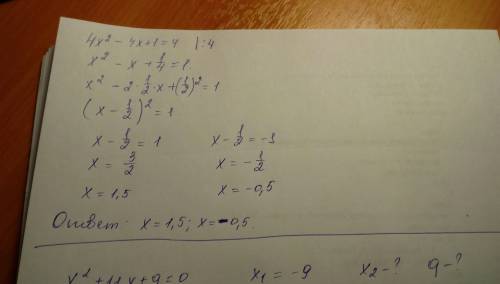 4x² - 4x + 1 = 4 |:4
x² - x + 1/4 = 1
x² - 2 · 1/2 · x + (1/2)² = 1
(x - 1/2)² = 1
x - 1/2 = 1 x - 1/2 = -1
x = 3/2 x = -1/2
x = 1,5 x = -0,5
Ответ: x = 1,5; x = -0,5.
x² + 11x + q = 0 x₁ = -9 x₂ - ? q - ?